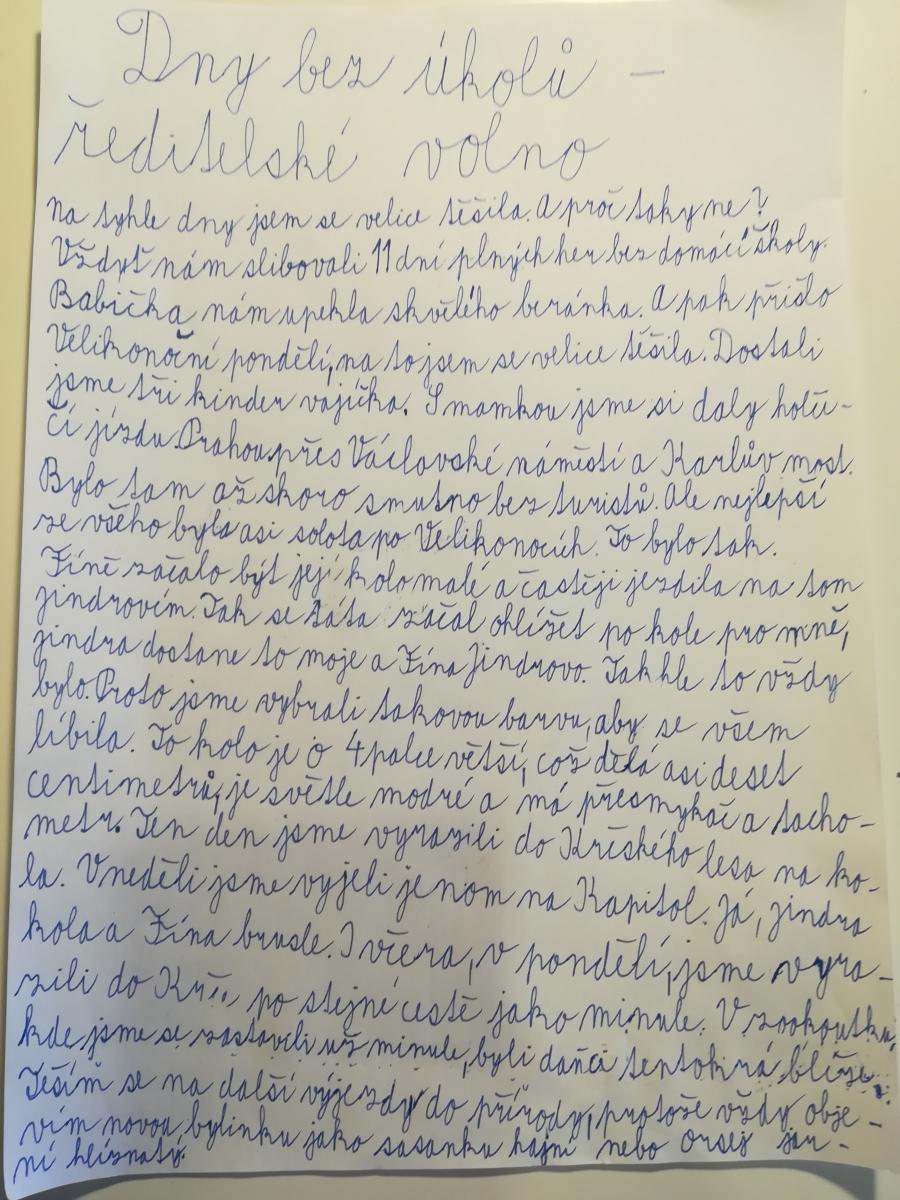 Dny bez úkolů –
ředitelské volno
Na tyhle dny jsem se velice těšila. A proč taky ne?
Vždyť nám slibovali 11 dní plných her bez domácí školy.
Babička nám upekla skvělého beránka. A pak přišlo
Velikonoční pondělí, na to jsem se velice těšila. Dostali
jsme tři kinder vajíčka. S mamkou jsme si daly holči-
čí jízdu Prahou přes Václavské náměstí a Karlův most.
Bylo tam až skoro smutno bez turistů. Ale nejlepší
ze všeho byla asi sobota po Velikonocích. To bylo tak.
Fíně začalo být její kolo malé a častěji jezdila na tom
Jindrovém. Tak se táta začal ohlížet po kole pro mně,
Jindra dostane to moje a Fína Jindrovo. Takhle to vždy
bylo. Proto jsme vybrali takovou barvu, aby se všem
líbila. To kolo je o 4 palce větší, což dělá asi deset
centimetrů, je světle modré a má přesmykač a tacho-
metr. Ten den jsme vyrazili do Krčského lesa na ko-
la. V neděli jsme vyjeli jenom na Kapitol. Já, Jindra
kola a Fína brusle. I včera, v pondělí, jsme vyra-
zili do Krč.. po stejné cestě jako minule. V zookoutku,
kde jsme se zastavili už minule, byli daňci tentokrá blíže.
Těším se na další výjezdy do přírody, protože vždy obje-
vím novou bylinku jako sasanku hajní nebo Orsej jar-
ní hlíznatý.